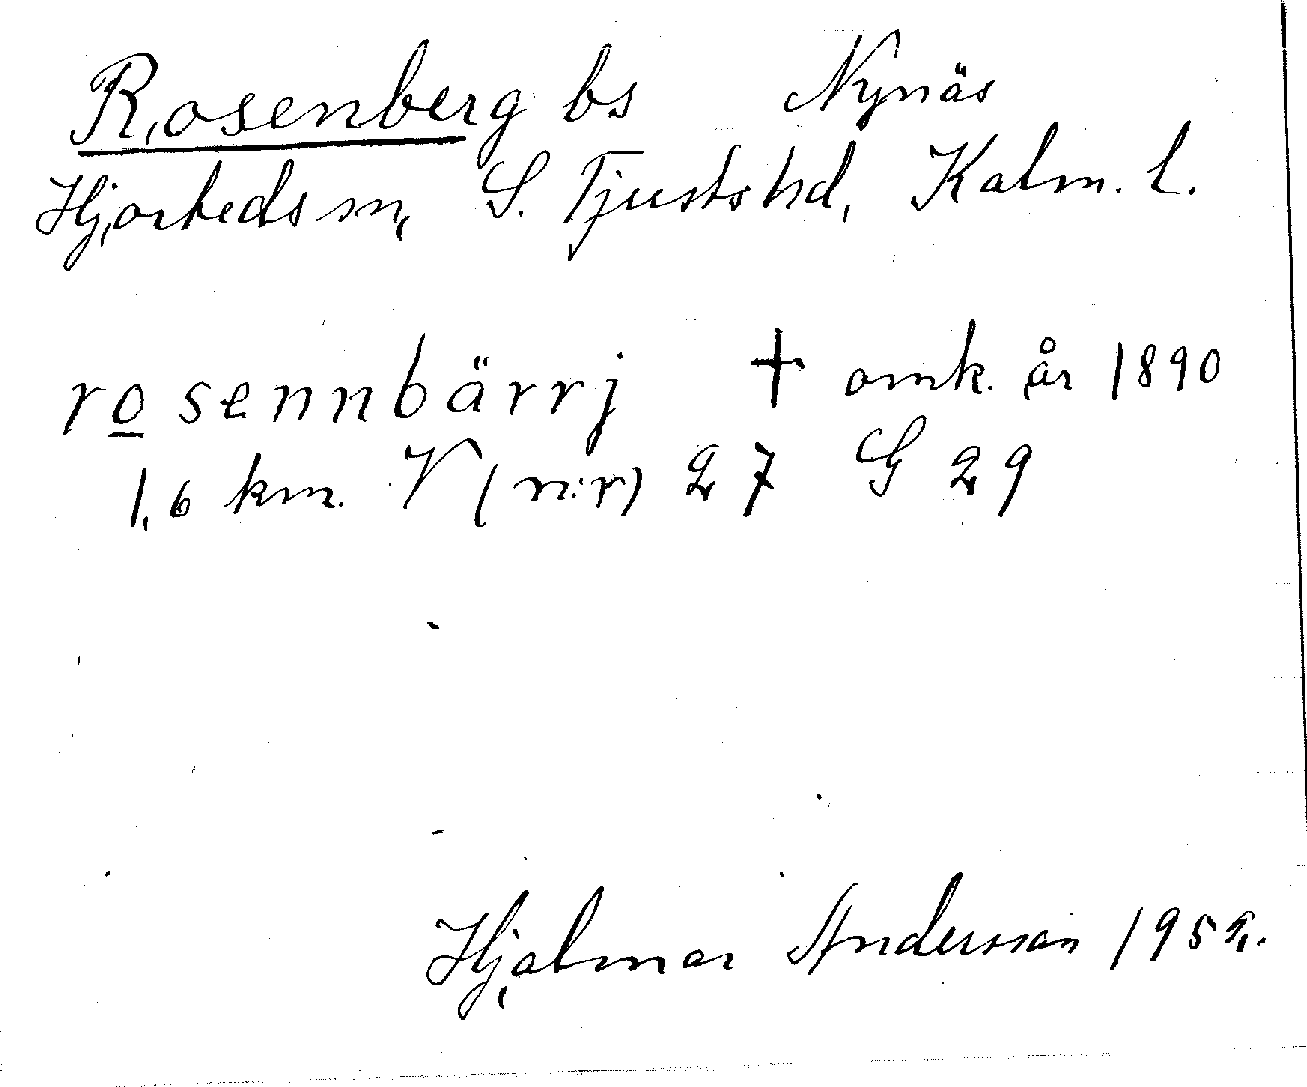 Rosenberg bs Nynäs
Hjorteds sn, S. Tjusts hd, Kalm. l.
rosennbärrj † omk. år 1890
1,6 km. V (n:r) 27 G 29
Hjalmar Andersson 1952.